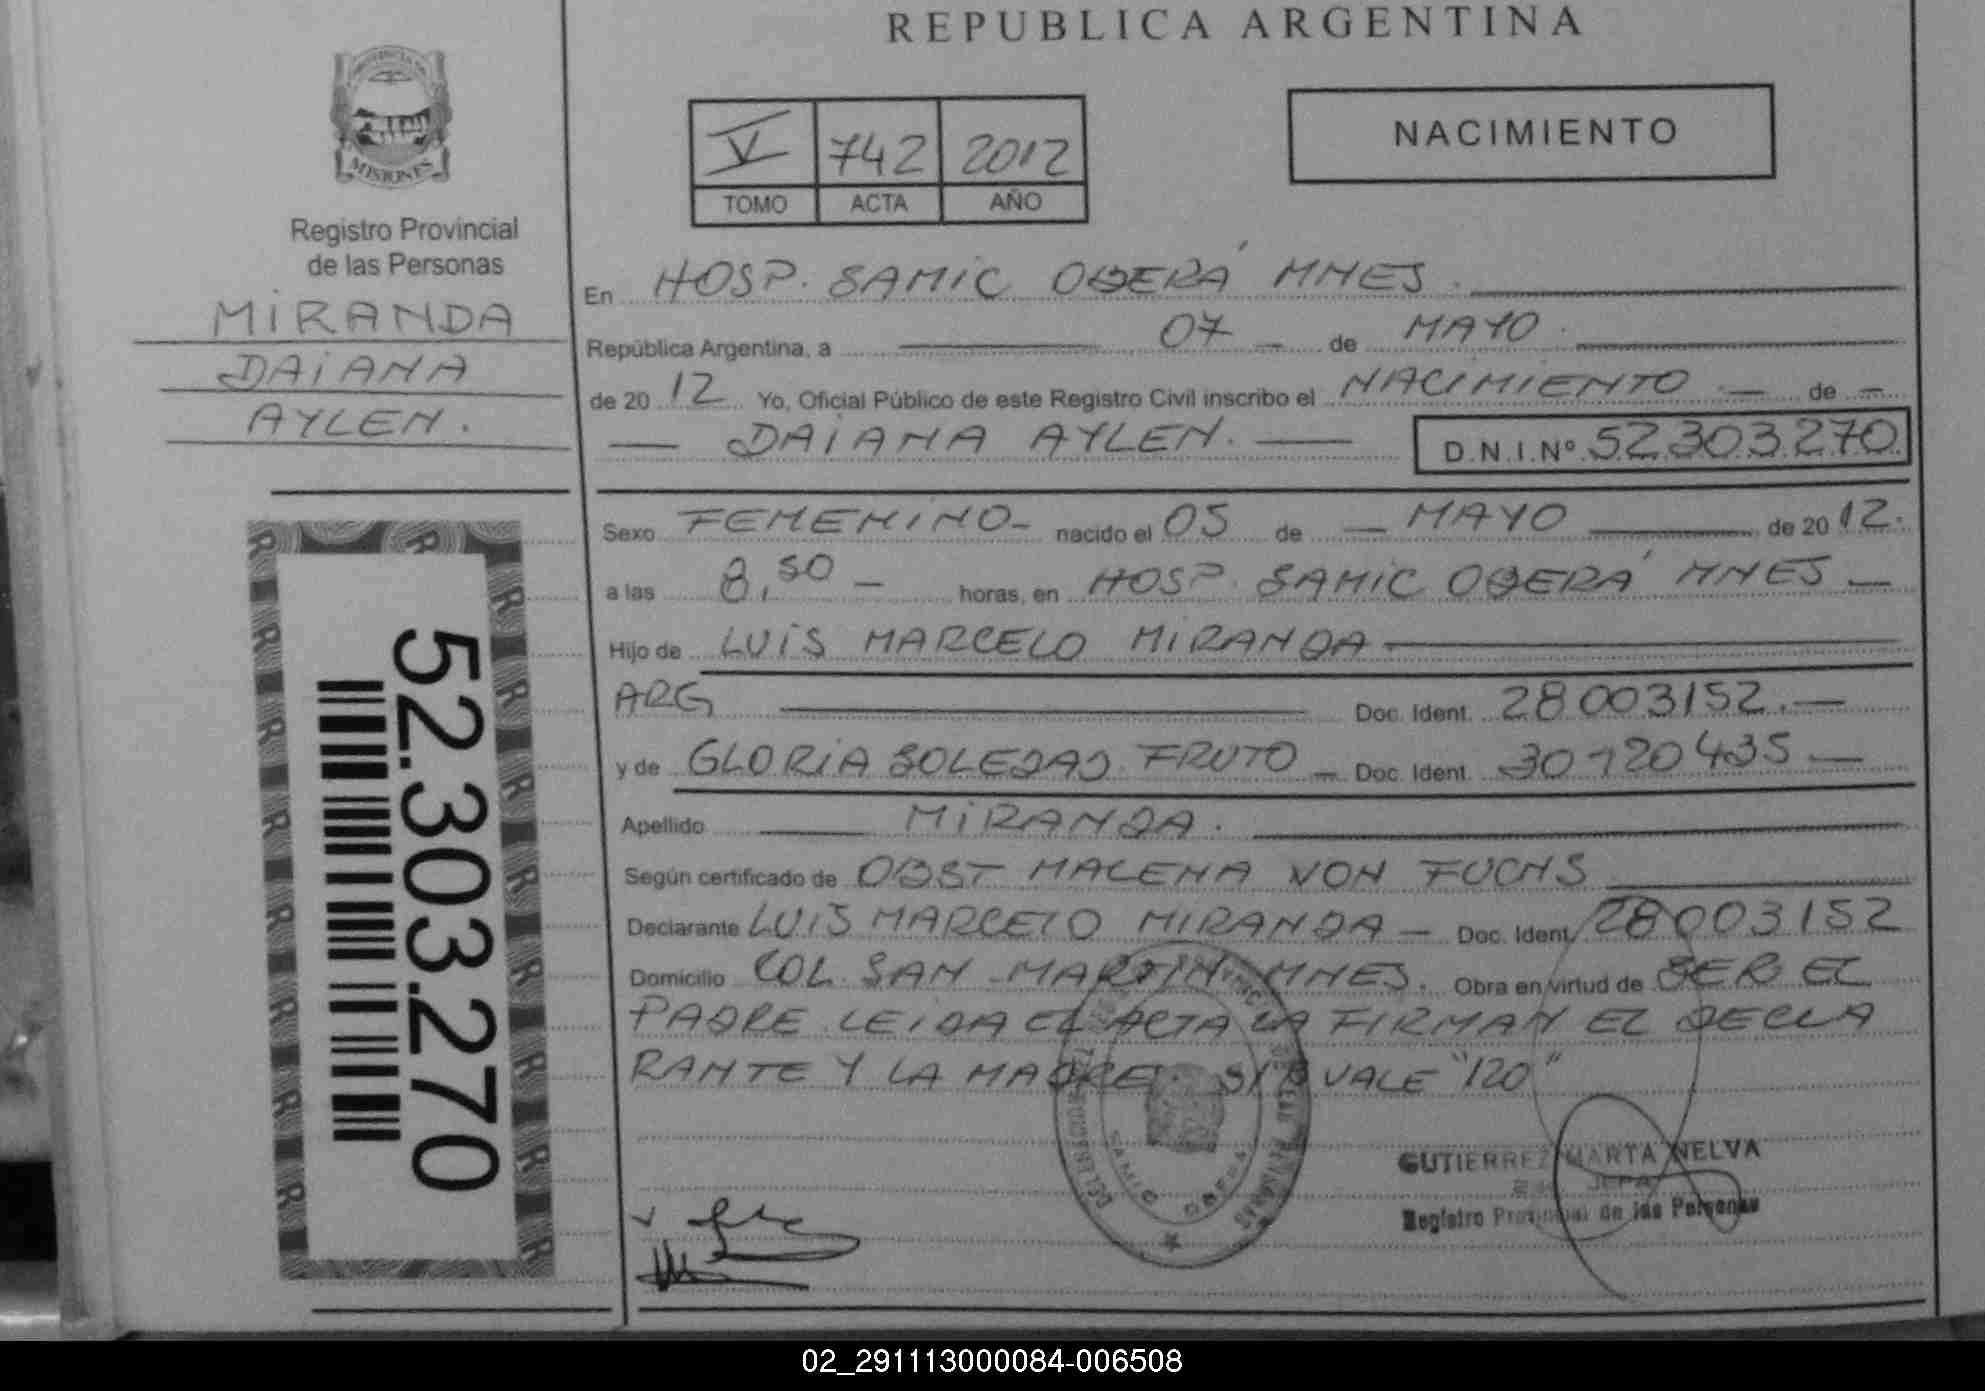 REPUBLICA ARGENTINA
PROVINCIA DE
MISIONES
Registro Provincial
de las Personas
MIRANDA
DAIANA
AYLEN.
V 742 2012
TOMO ACTA AÑO
NACIMIENTO
En HOSP. SAMIC OBERÁ MNES.
República Argentina, a 07 de MAYO
de 20 12 Yo, Oficial Público de este Registro Civil inscribo el NACIMIENTO de
DAIANA AYLEN. D.N.I.Nº 52.303.270
Sexo FEMENINO nacido el 05 de MAYO de 20 12.
a las 8,50 horas, en HOSP. SAMIC OBERÁ MNES
Hijo de LUIS MARCELO MIRANDA
ARG Doc. Ident. 28003152.
y de GLORIA SOLEDAD FRUTO Doc. Ident. 30120435
Apellido MIRANDA.
Según certificado de OBST MALENA VON FUCHS
Declarante LUIS MARCELO MIRANDA Doc. Ident 28003152
Domicilio COL. SAN MARTIN MNES. Obra en virtud de SER EL
PADRE LEIDA EL ACTA LA FIRMAN EL DECLA
RANTE Y LA MADRE. S/R VALE "120"
52.303.270
SAMIC OBERA
GUTIERREZ MARTA NELVA
JEFA
Registro Provincial de las Personas
02_291113000084-006508